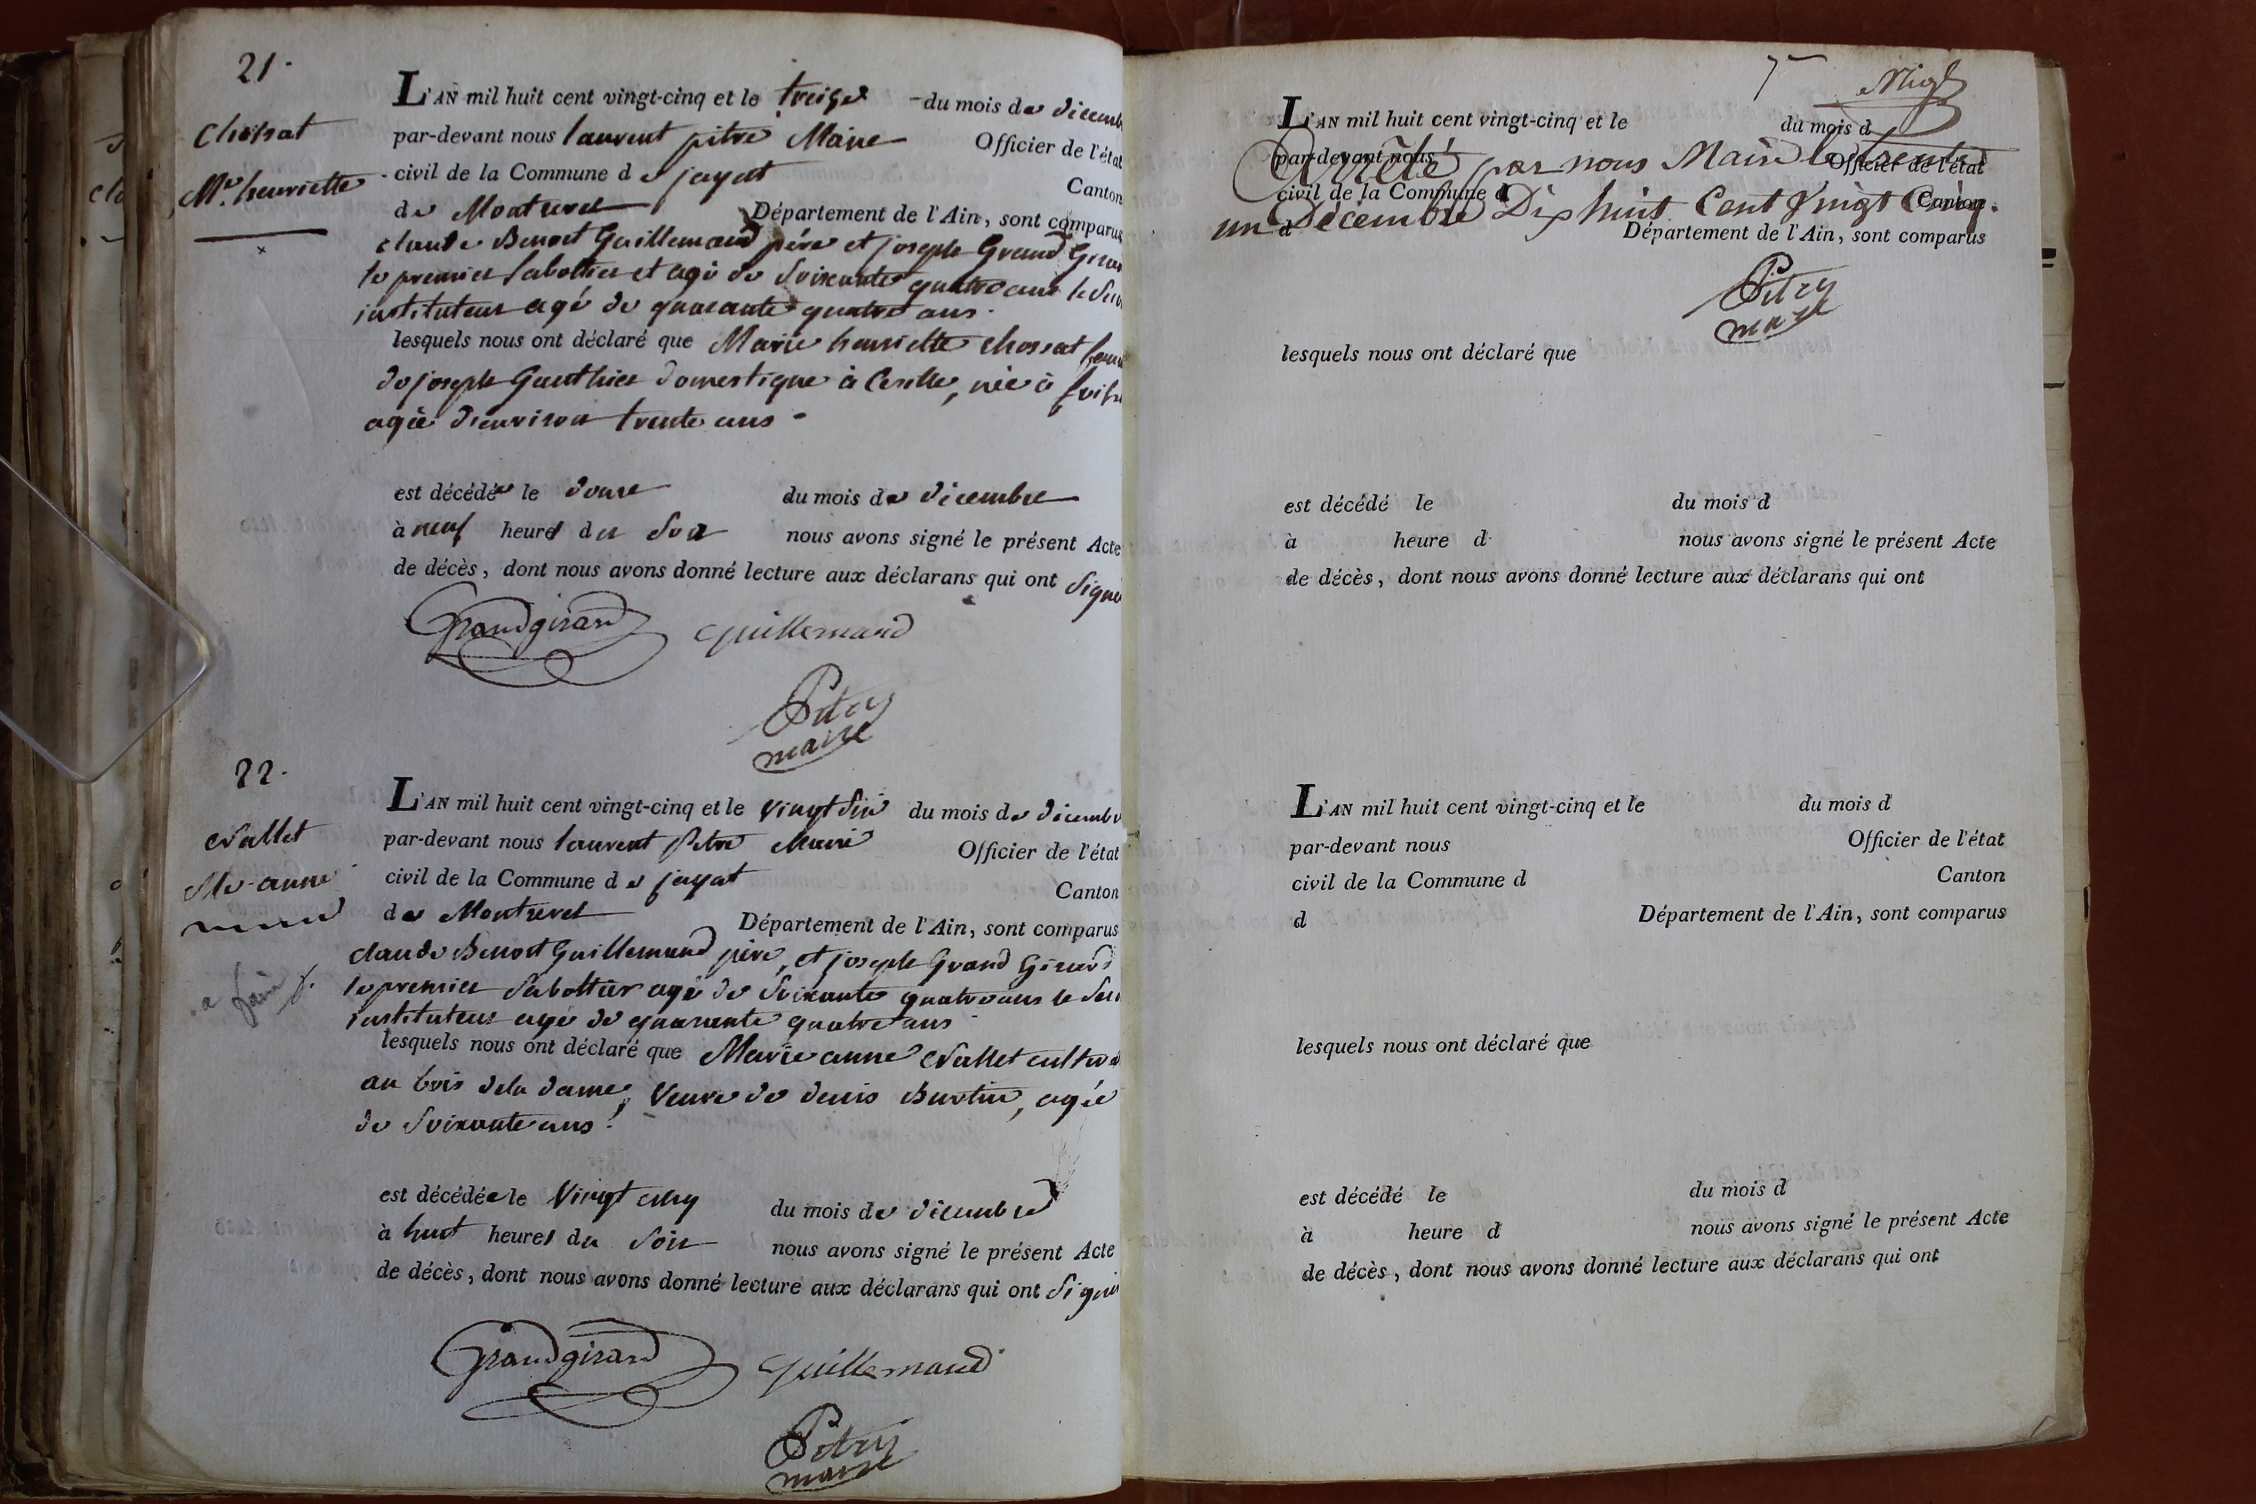 21.
Chossat
Mie henriette
L'AN mil huit cent vingt-cinq et le treize du mois de décemb
par-devant nous laurent pitre Maire Officier de l'état
civil de la Commune de jayat Canton
de Montrevel Département de l'Ain, sont comparus
claude Benoit Guillemaud père et joseph Grand Girar
le premier sabottier et agé de soixante quatre ans le secon
instituteur agé de quarante quatre ans.
lesquels nous ont déclaré que Marie henriette chossat femme
de joseph Gauthier domestique à Cesille, née à foiss
agée d'environ trente ans
est décédée le douze du mois de décembre
à neuf heures du soir nous avons signé le présent Acte
de décès, dont nous avons donné lecture aux déclarans qui ont signé
Grandgirard Guillemaud
Pitre
maire
22.
Vallet
Me-anne
a faire
L'AN mil huit cent vingt-cinq et le vingt six du mois de décemb
par-devant nous laurent Pitre Maire Officier de l'état
civil de la Commune de jayat Canton
de Montrevel Département de l'Ain, sont comparus
claude Benoit Guillemaud père, et joseph Grand Girard
le premier sabottier agé de soixante quatre ans le secon
instituteur agé de quarante quatre ans
lesquels nous ont déclaré que Marie anne Vallet cultiv
au bois de la dame, veuve de denis Burtin, agée
de soixante ans.
est décédée le vingt cinq du mois de décembre
à huit heures du soir nous avons signé le présent Acte
de décès, dont nous avons donné lecture aux déclarans qui ont signé
Grandgirard Guillemaud
Pitre
maire
L'AN mil huit cent vingt-cinq et le du mois d
par-devant nous Officier de l'état
Arrêté par nous Maire le trente
civil de la Commune d Canton
un Décembre Dix huit Cent Vingt Cinq.
d Département de l'Ain, sont comparus
Pitre
maire
lesquels nous ont déclaré que
est décédé le du mois d
à heure d nous avons signé le présent Acte
de décès, dont nous avons donné lecture aux déclarans qui ont
L'AN mil huit cent vingt-cinq et le du mois d
par-devant nous Officier de l'état
civil de la Commune d Canton
d Département de l'Ain, sont comparus
lesquels nous ont déclaré que
est décédé le du mois d
à heure d nous avons signé le présent Acte
de décès, dont nous avons donné lecture aux déclarans qui ont